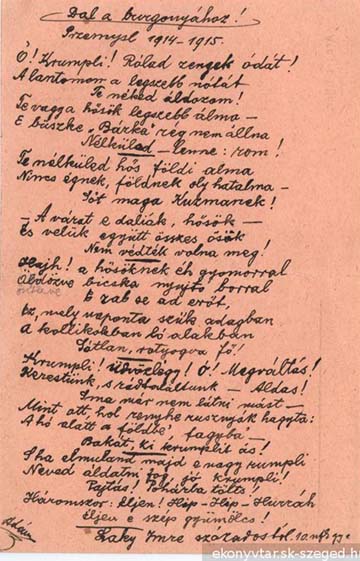 Dal a burgonyához!
Przemysl 1914-1915.
Ó! Krumpli! Rólad zengek ódát!
A lantomon a legszebb nótát
Te néked áldozom!
Te vagy a hősök legszebb álma –
E büszke „Bárka” rég nem állna
Nélküled – lenne: rom!
Te nélküled hős földi alma
Nincs égnek, földnek oly hatalma –
Sőt maga Kuzmanek!
– A várat e daliák, hősök –
És velük együtt összes ősök
Nem védték volna meg!
Hajh! a hősöknek éh gyomorral
bicska nyujtó borral
E zab se ad erőt,
Ez, mely naponta szűk adagban
A kollikokban ló alakban
Sótlan, rotyogva fő!
Krumpli! Üdvözlégy! Ó! Megváltás!
Kerestünk, s rádtaláltunk – Áldás!
Ima már nem látni mást –
Mint ott, hol renyhe rusznyák hagyta:
A hó alatt a földbe' fagyba –
Bakát, ki krumplit ás!
S ha elmuland majd e nagy rumpli
Neved áldatni fog jó krumpli!
Pajtás! Pohárba tölts!
Háromszor: Éljen! Hip – Hip – Hurráh
Éljen e szép gyümölcs!
Laky Imre századostól. 10.
ekonyvtar.sk-szeged.hu